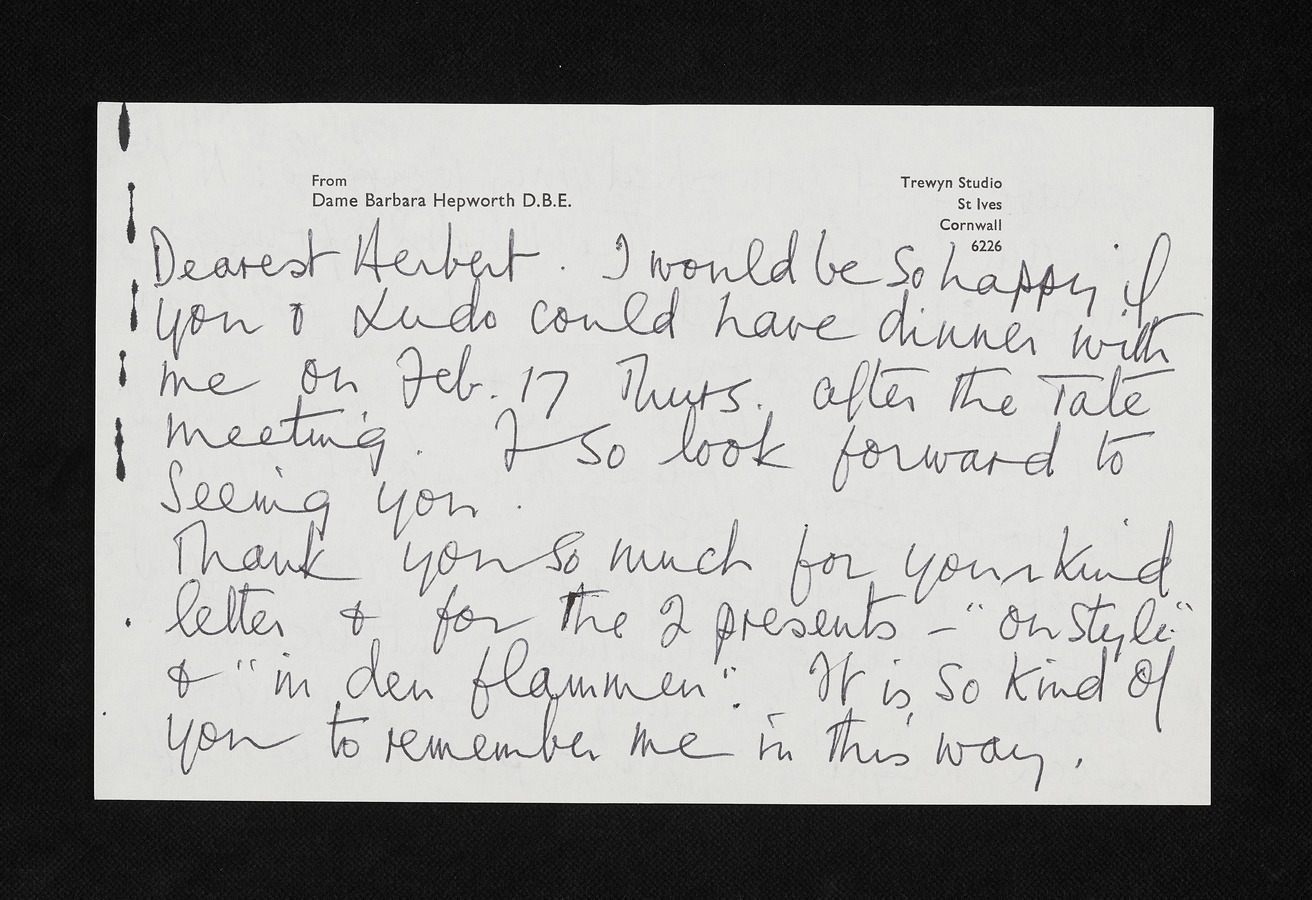 From
Dame Barbara Hepworth D.B.E.
Trewyn Studio
St Ives
Cornwall
6226
Dearest Herbert. I would be so happy if
you & Ludo could have dinner with
me on Feb. 17 Thurs. after the Tate
meeting. I so look forward to
Seeing you.
Thank you so much for your kind
letter & for the 2 presents – "on Style"
& "in den flammen". It is so kind of
you to remember me in this way.